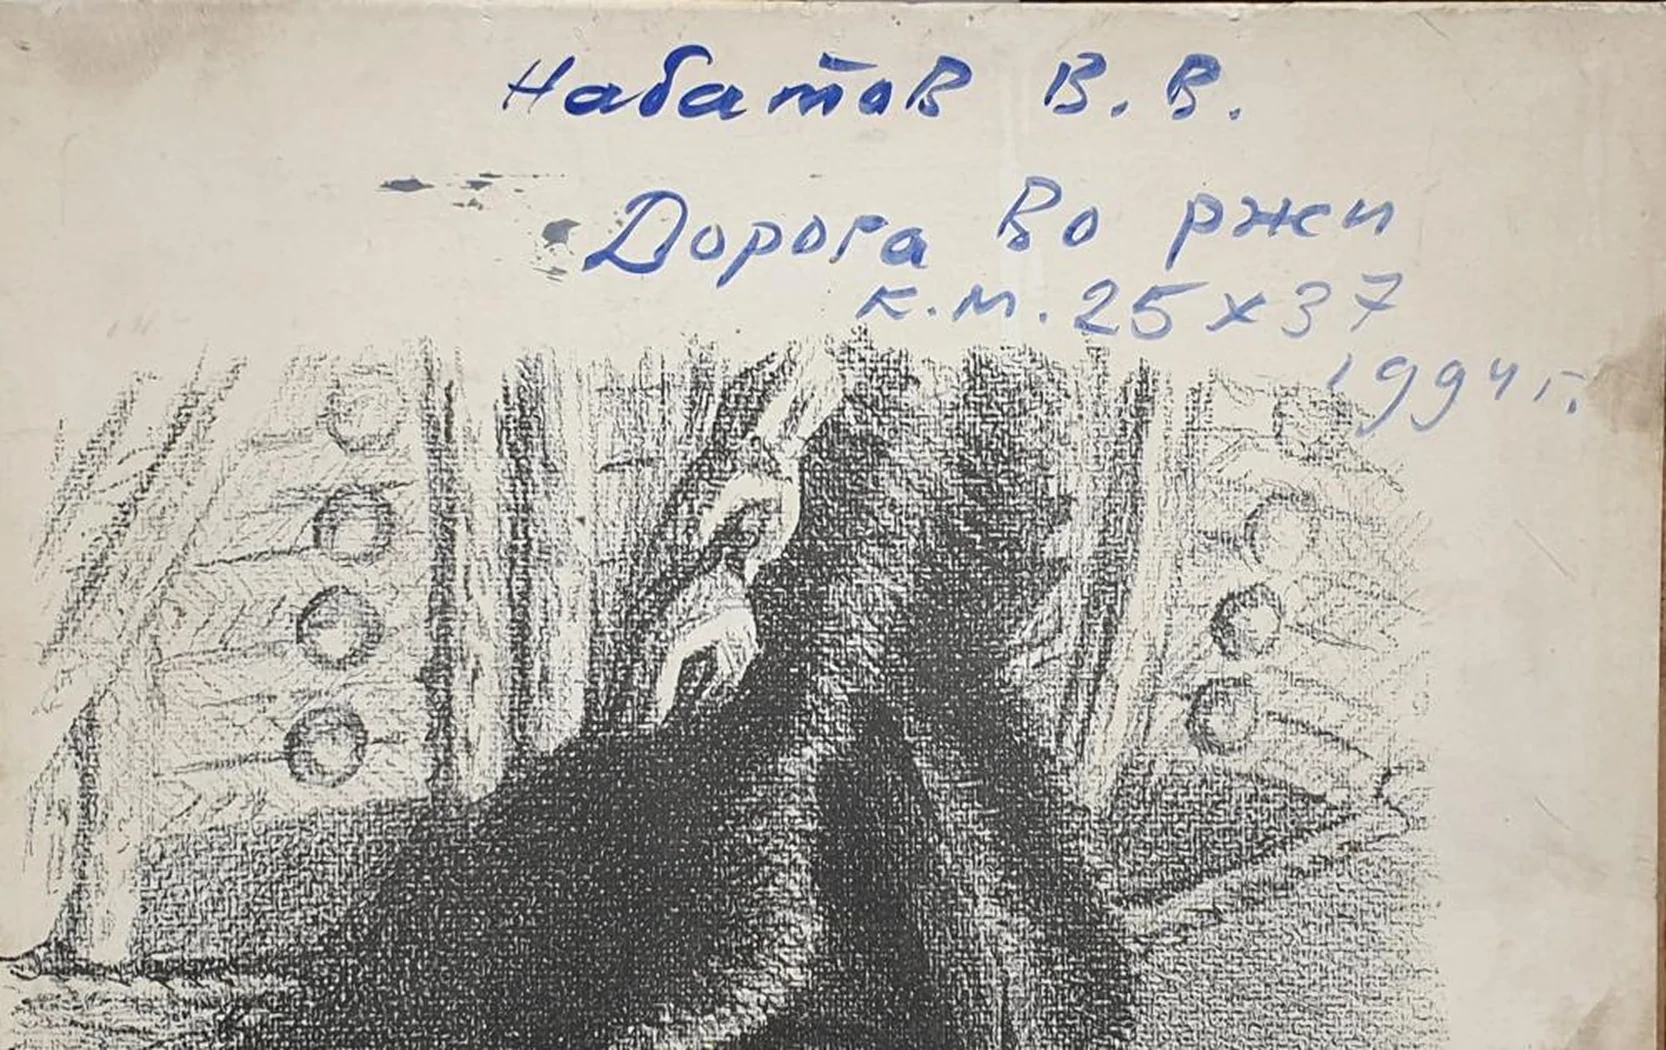 Набатов В. В.
Дорога во ржи
к.м. 25 х 37
1994 г.